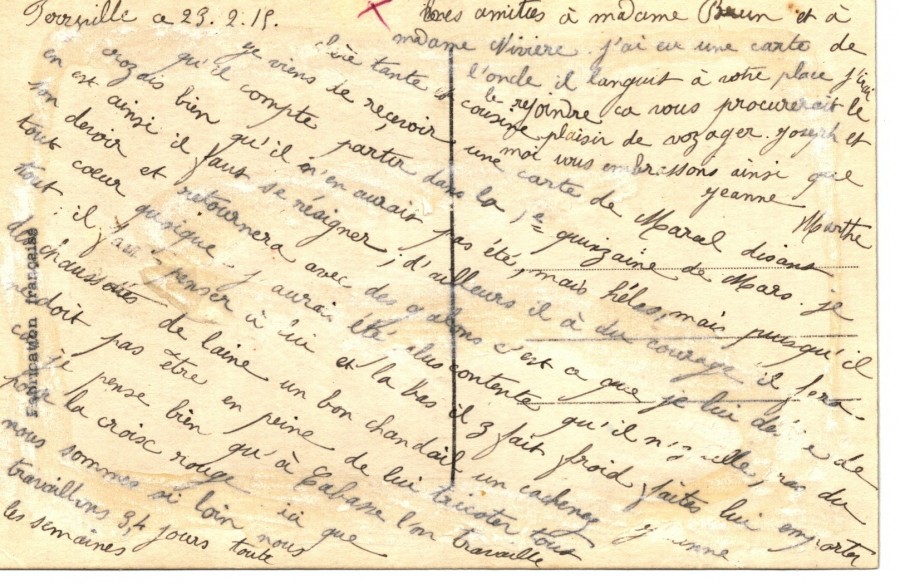 Perrville ce 23.2.15.
Chère tante et cousine
je viens de recevoir une carte de Marcel disant
qu'il compte partir dans la 1e quinzaine de Mars. je
croyais bien qu'il n'en aurait pas été, mais hélas, mais puisqu'il
en est ainsi il faut se résigner, d'ailleurs il a du courage il fera
son devoir et retournera avec des galons c'est ce que je lui désire de
tout cœur quoique j'aurais été plus contente qu'il n'y aille pas du
tout : il faut penser à lui et là bas il y fait froid faites lui emporter
des chaussettes de laine un bon chandail un cachenez
ne doit pas être en peine de lui tricoter tout
ça je pense bien qu'à Cabasse l'on travaille
pour la croix rouge ici que
nous sommes si loin nous
travaillons 3,4 jours toute
les semaines
Mes amitiés à madame Brun et à
madame Vivière. j'ai eu une carte de
l'oncle il languit à votre place j'irai
le rejoindre ça vous procurerait le
plaisir de voyager. Joseph et
moi vous embrassons ainsi que
Jeanne Marthe
Fabrication française